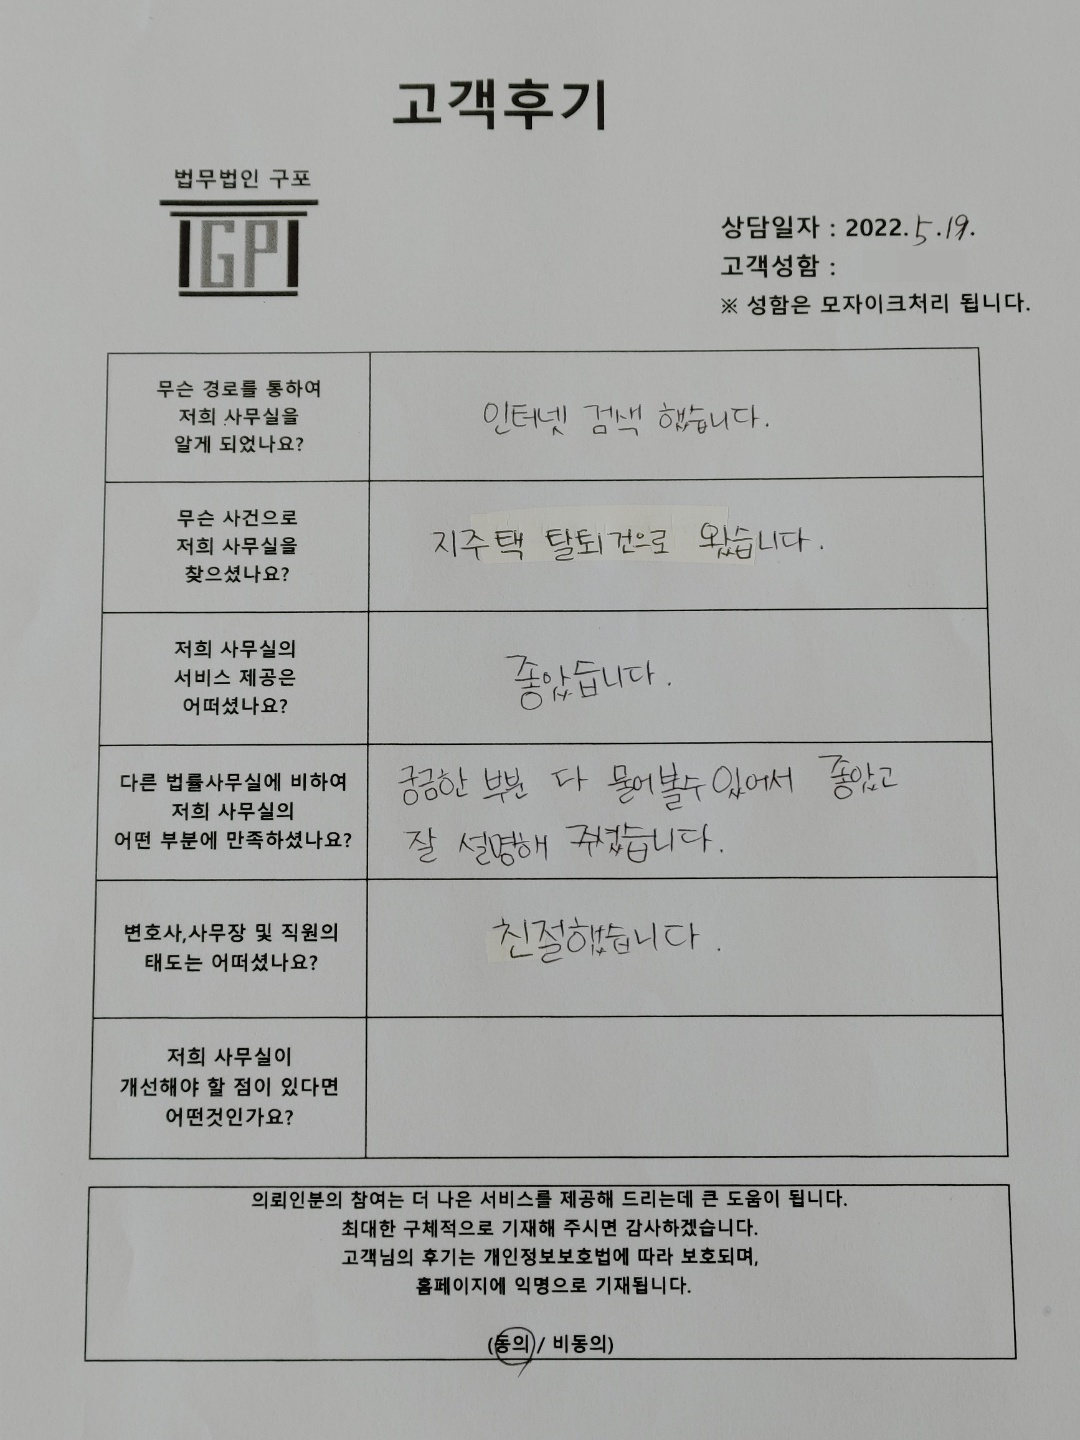 고객후기
법무법인 구포
IGPI
상담일자 : 2022.5.19.
고객성함 :
※ 성함은 모자이크처리 됩니다.
무슨 경로를 통하여
저희 사무실을
알게 되었나요?
인터넷 검색 했습니다.
무슨 사건으로
저희 사무실을
찾으셨나요?
지주택 탈퇴건으로 왔습니다.
저희 사무실의
서비스 제공은
어떠셨나요?
좋았습니다.
다른 법률사무실에 비하여
저희 사무실의
어떤 부분에 만족하셨나요?
궁금한 부분 다 물어볼수있어서 좋았고
잘 설명해 주셨습니다.
변호사,사무장 및 직원의
태도는 어떠셨나요?
친절했습니다.
저희 사무실이
개선해야 할 점이 있다면
어떤것인가요?
의뢰인분의 참여는 더 나은 서비스를 제공해 드리는데 큰 도움이 됩니다.
최대한 구체적으로 기재해 주시면 감사하겠습니다.
고객님의 후기는 개인정보보호법에 따라 보호되며,
홈페이지에 익명으로 기재됩니다.
(동의 / 비동의)